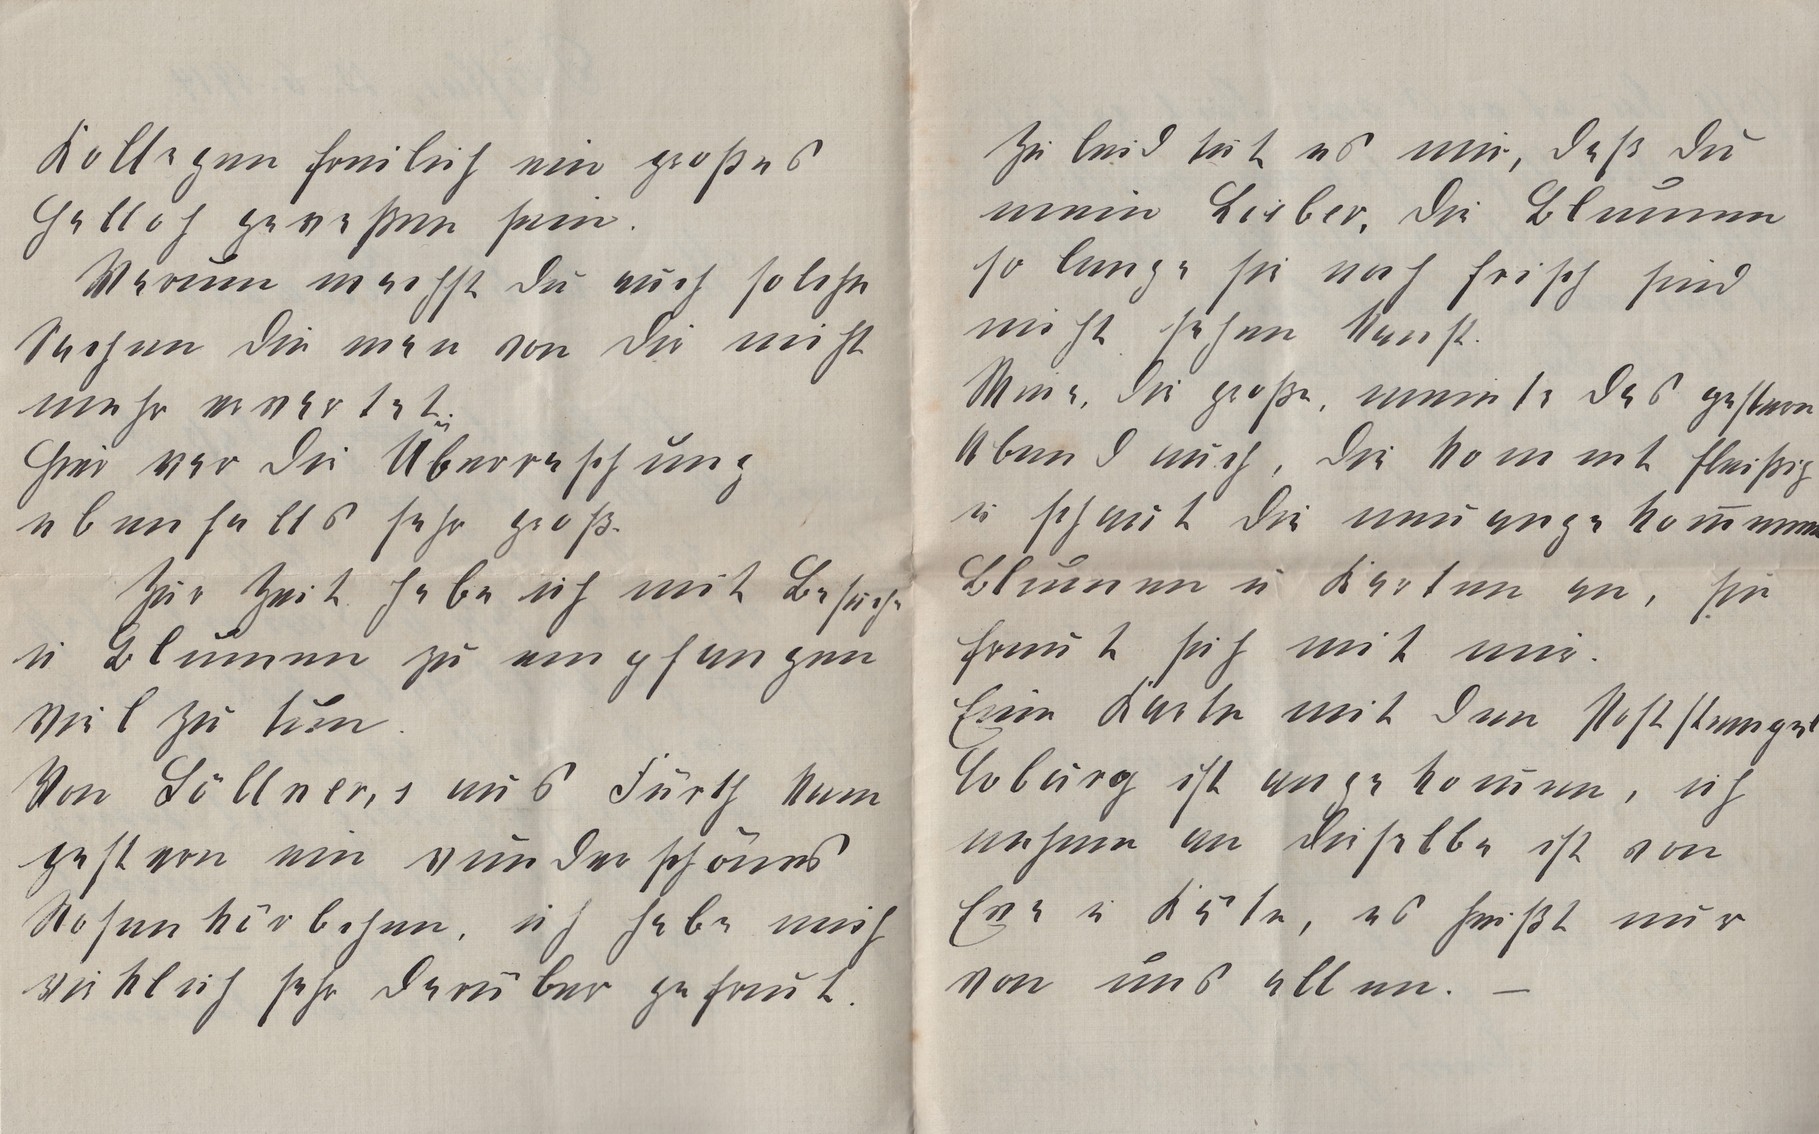 Kollegen freilich ein großes
Halloh geweßen sein.
Warum machst Du auch solche
Sachen die man von Dir nicht
mehr erwartet.
Hier war die Überraschung
ebenfalls sehr groß.
Zur Zeit habe ich mit Besuche
u Blumen zu empfangen
viel zu tun.
Von Söllner,s aus Fürth kam
gestern ein wunderschönes
Rosenkörbchen, ich habe mich
wirklich sehr darüber gefreut.
Zu leid tut es mir, daß Du
mein Lieber, die Blumen
so lange sie noch frisch sind
nicht sehen kanst.
die große, meinte das gestern
Abend auch, die kommt fleißig
u schaut die neuangekom̅enen
Blumen u Karten an, sie
freut sich mit mir.
Eine Karte mit den Poststempel
Coburg ist angekom̅en, ich
nehme an dieselbe ist von
Eva u Käte, es heißt nur
von uns allen. —